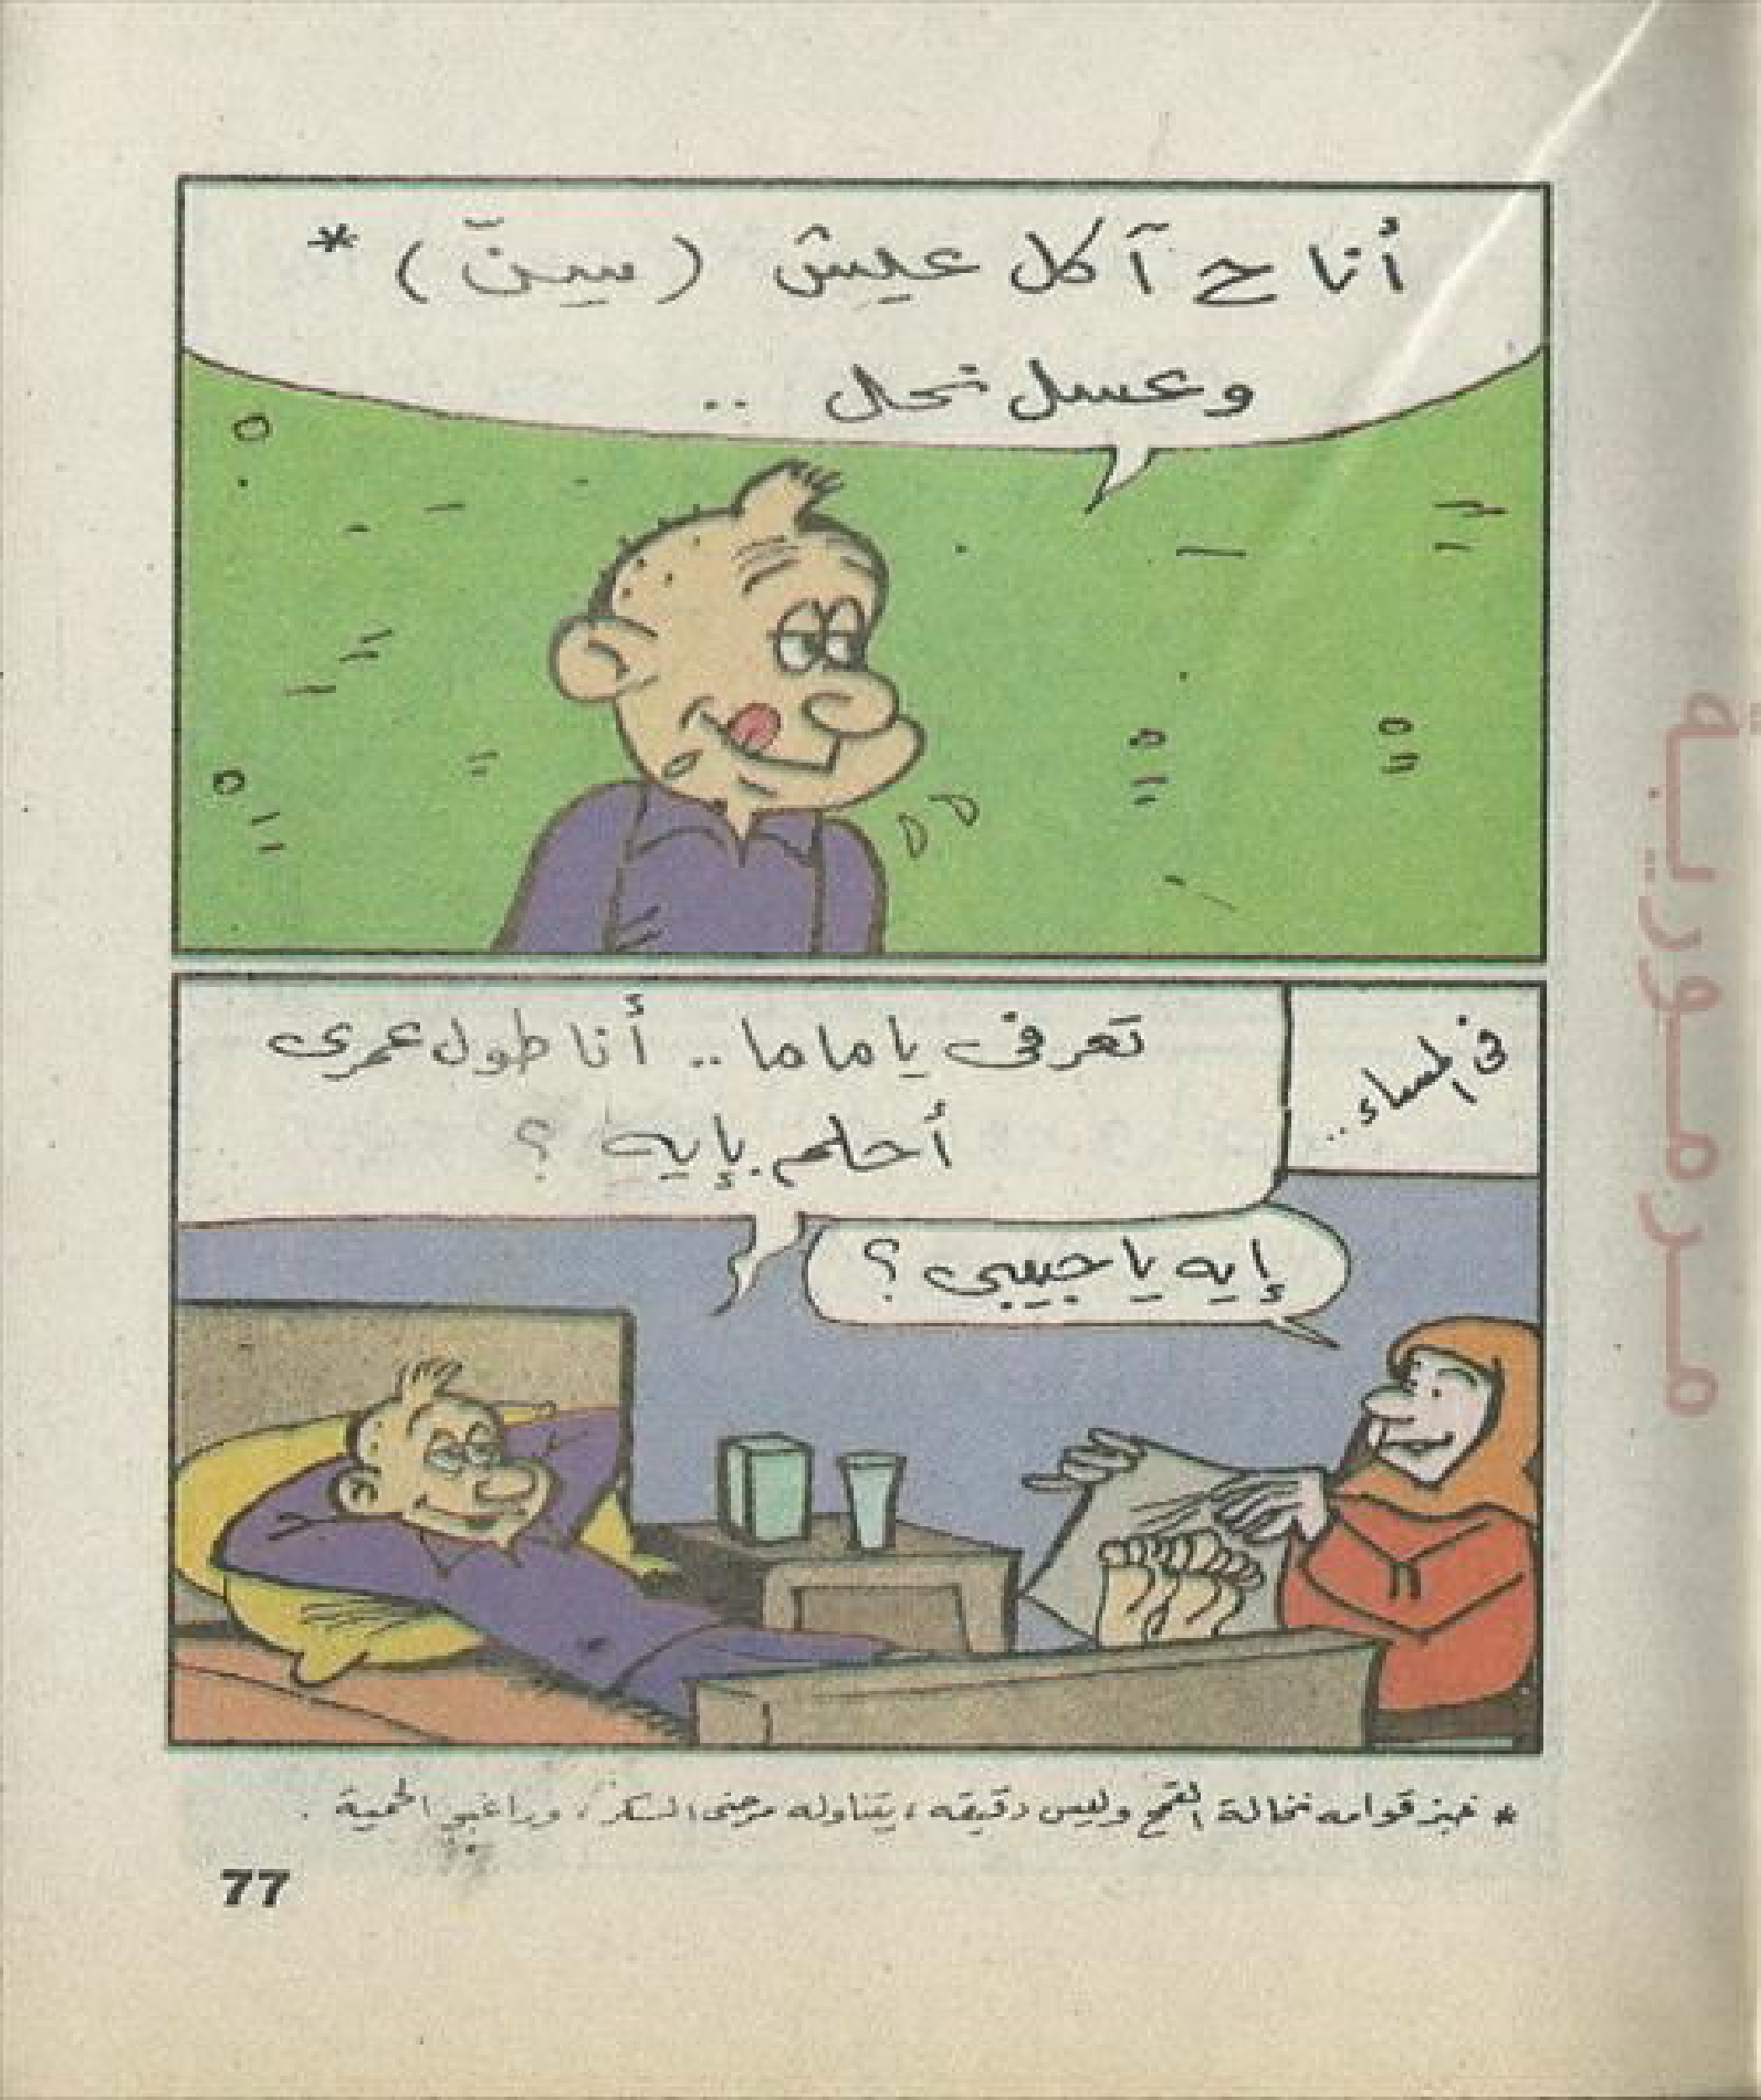 أنا ح آكل عيش (سِنّ) *
وعسل نحل ..
فى المساء..
تعرفى يا ماما .. أنا طول عمرى
أحلم بإيه ؟
إيه يا حبيبى ؟
* خبز قوامه نخالة القمح وليس دقيقه ، يتناوله مرضى السكر ، وراغبو الحمية .
77